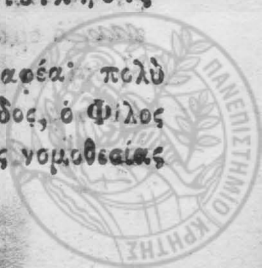 αφέαι πολὺ
δος, ὁ Φίλος
ς νομοθεσίας
ΠΑΝΕΠΙΣΤΗΜΙΟ ΚΡΗΤΗΣ